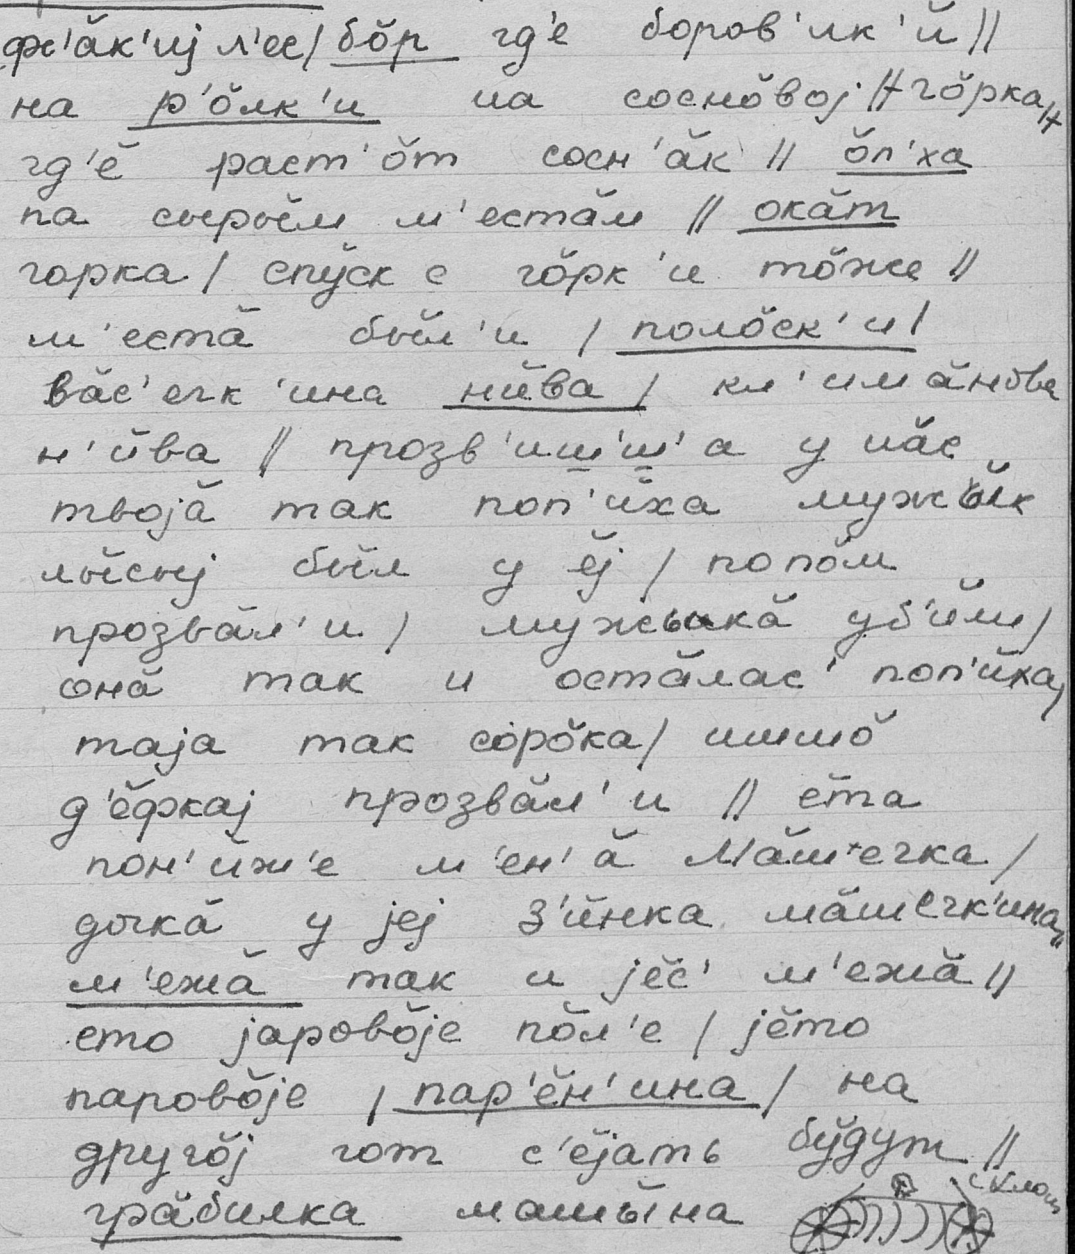 фс'а́к'иj л'ес/ бо́р гд'е́ боров'ик'и́ //
на р'о́лк'и на сосно́воj // го́рка //
гд'е́ раст'о́т сосн'а́к // о́п'ха
па сыры́м м'еста́м // ока́т
горка / спу́ск с го́рк'и то́же //
м'еста́ бы́л'и / поло́ск'и /
ва́с'ечк'ина ни́ва / кл'има́нова
н'и́ва // прозв'иш'ш'а у на́с
твоjа́ так поп'и́ха мужы́к
лы́сыj бы́л у е́j / попо́м
прозва́л'и / мужыка́ уб'и́ли /
она́ так и оста́лас' поп'и́ха,
таjа так соро́ка / ишшо́
д'е́фкаj прозва́л'и // е́та
пон'и́ж'е м'ен'а́ Ма́ш'ечка /
дочка́ у jеj З'и́нка ма́шечк'ина //
м'ежа́ так и jе́с' м'ежа́ //
ето jарово́jе по́л'е / jе́то
парово́jе / пар'е́н'ина / на
друго́j гот с'е́jать бу́дут //
гра́билка машы́на